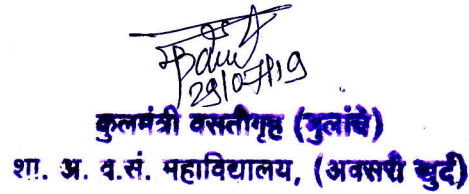 29/07/19
कुलमंत्री वसतीगृह (मुलांचे)
शा. अ. व.सं. महाविद्यालय, (अवसरी खुर्द)